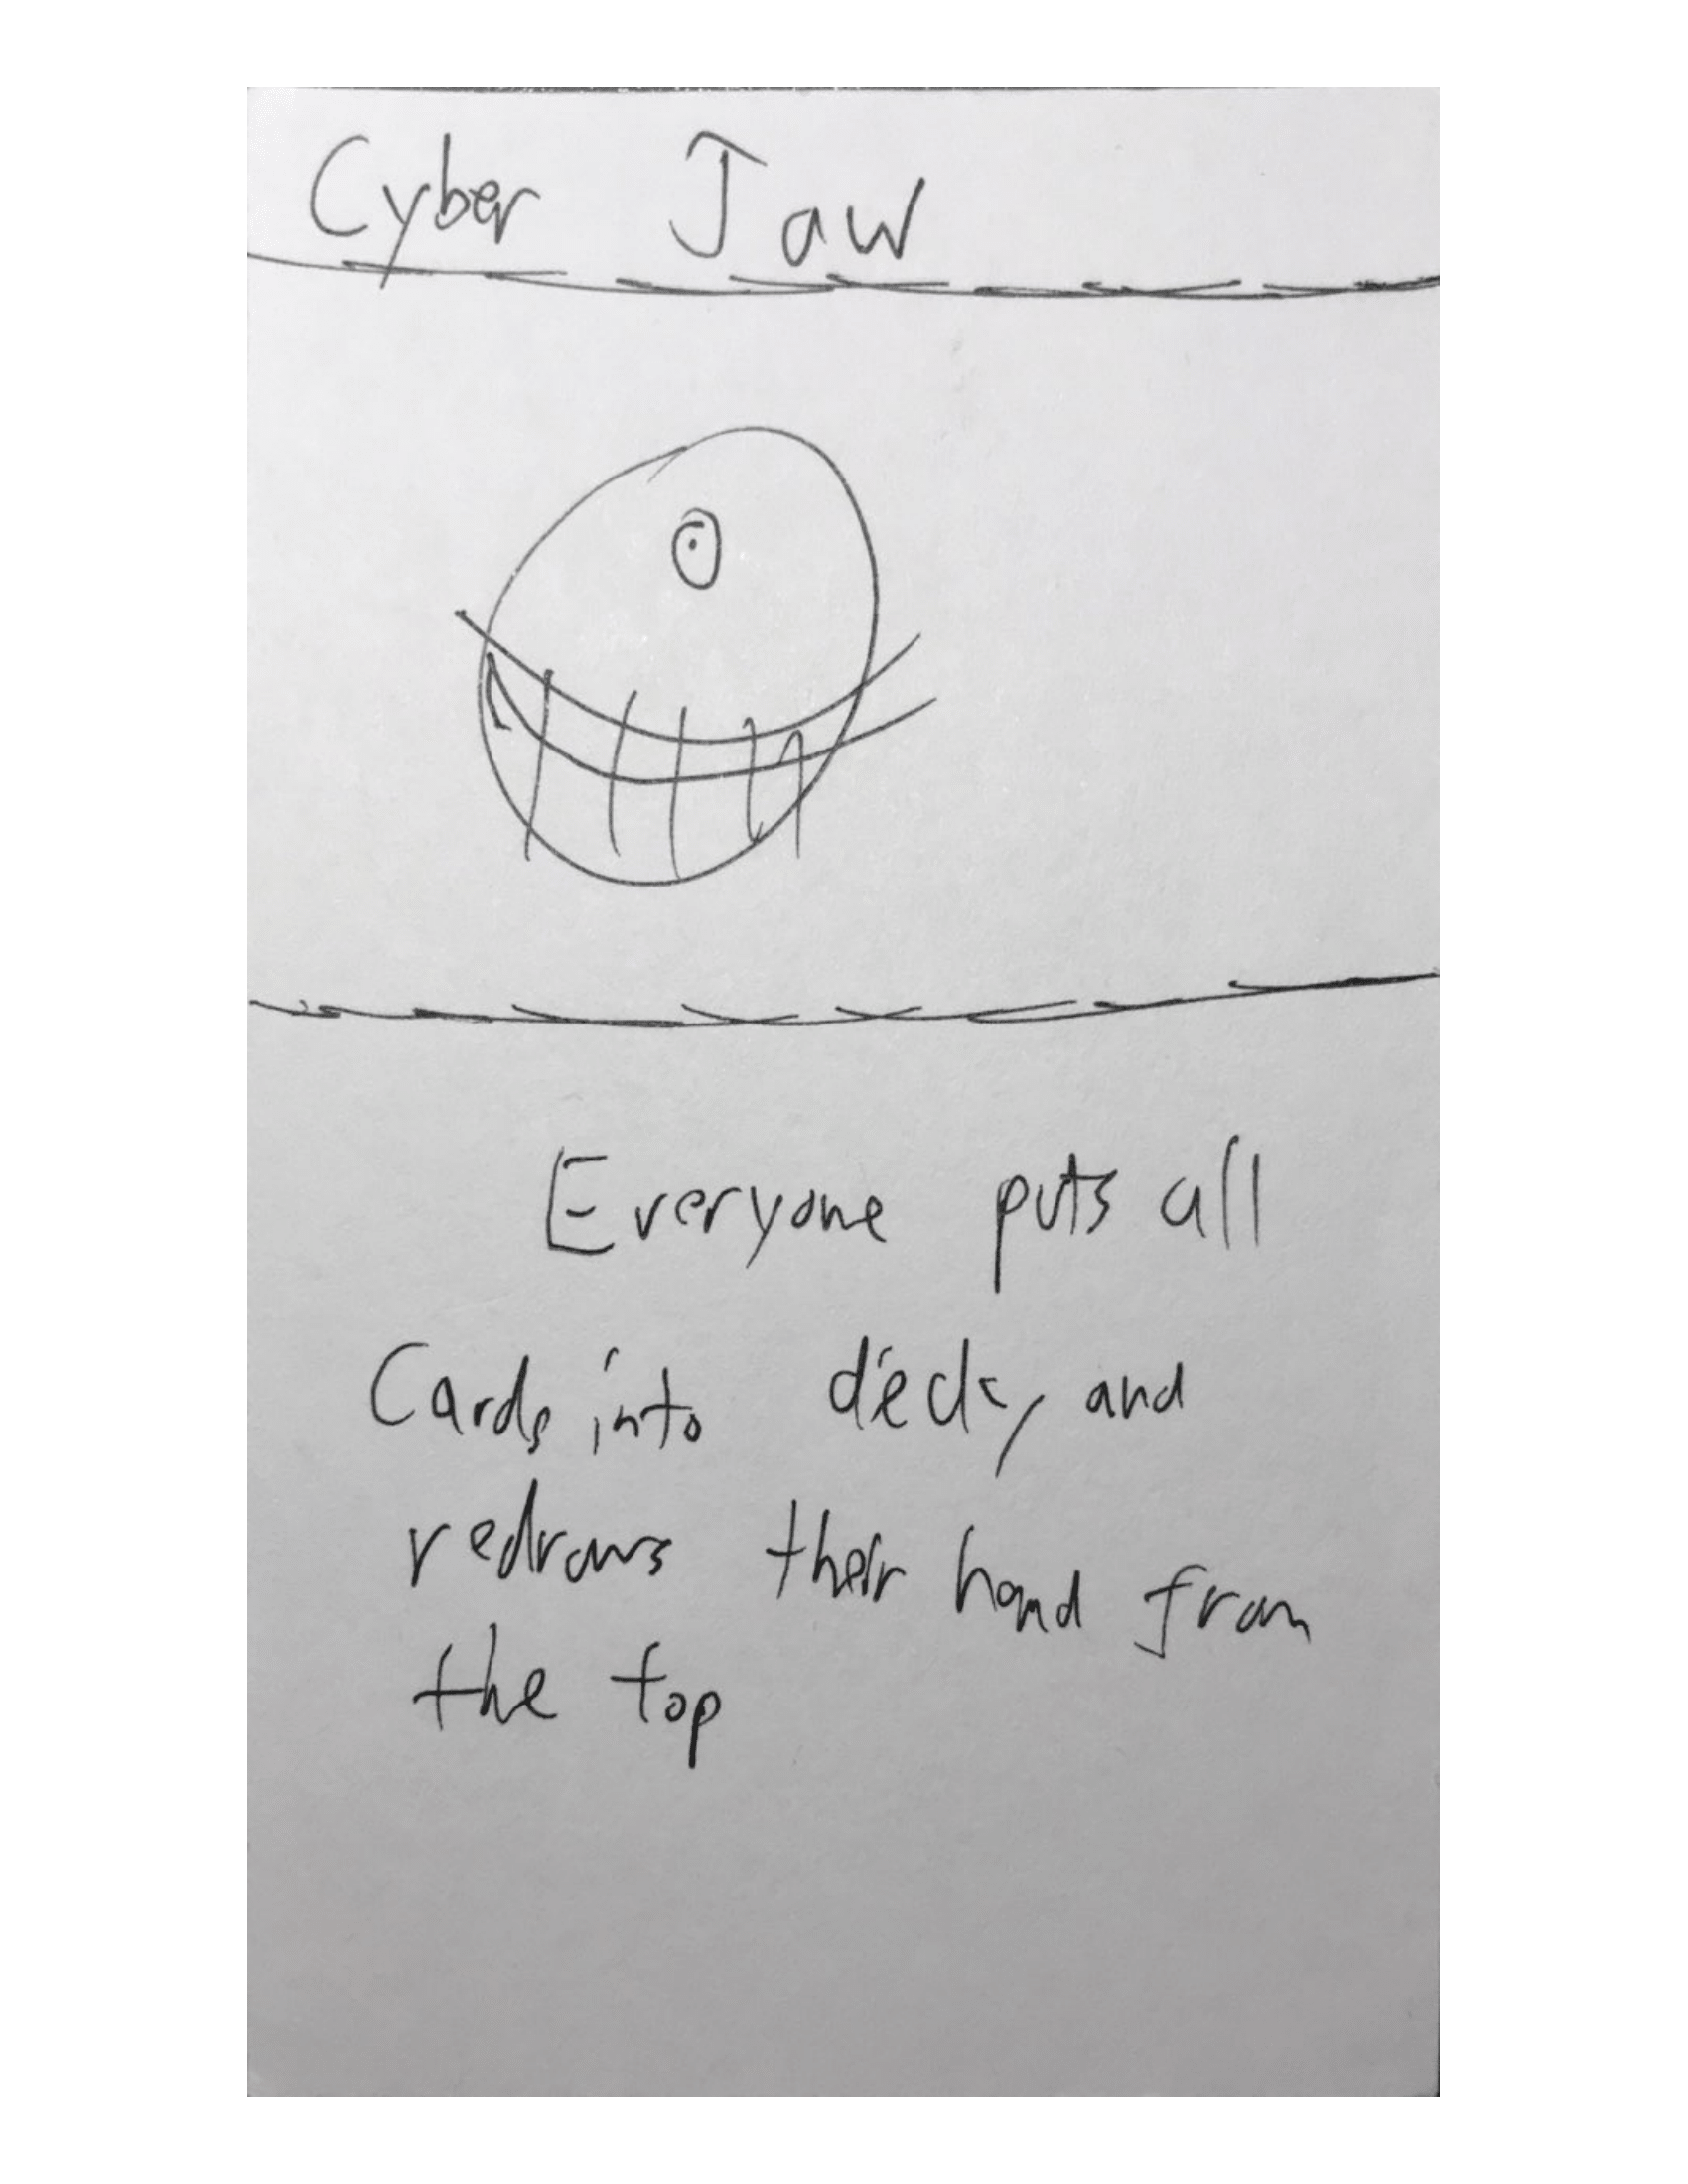 Cyber Jaw
Everyone puts all
Cards into deck, and
redraws their hand from
the top